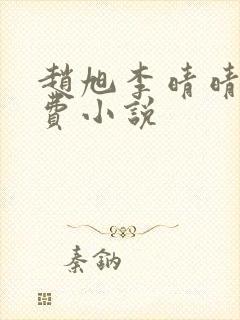 趙旭李晴晴
費小說
秦鈉